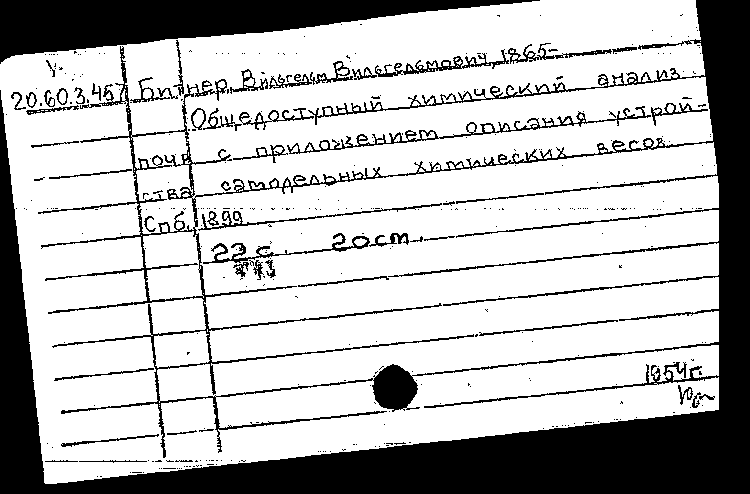 20.60.3.457 Битнер, Вильгельм Вильгельмович, 1865-
Общедоступный химический анализ
почв с приложением описания устрой-
ства самодельных химических весов.
Спб., 1899
22 с. 20 см.
1954 г.